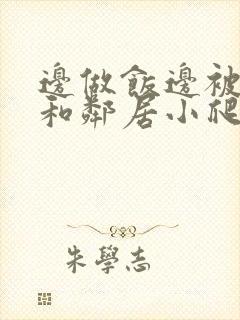 邊做飯邊被
和鄰居小爬
朱學志